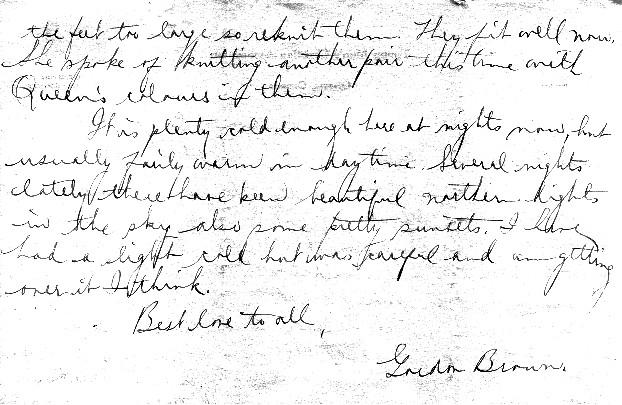 the feet too large so reknit them. They fit well now.
She spoke of knitting another pair this time with
Queen's colours in them.
It is plenty cold enough here at nights now, but
usually fairly warm in daytime. Several nights
lately there have been beautiful northern lights
in the sky also some pretty sunsets. I have
had a slight cold but was careful and am getting
over it I think.
Best love to all,
Gordon Brown.